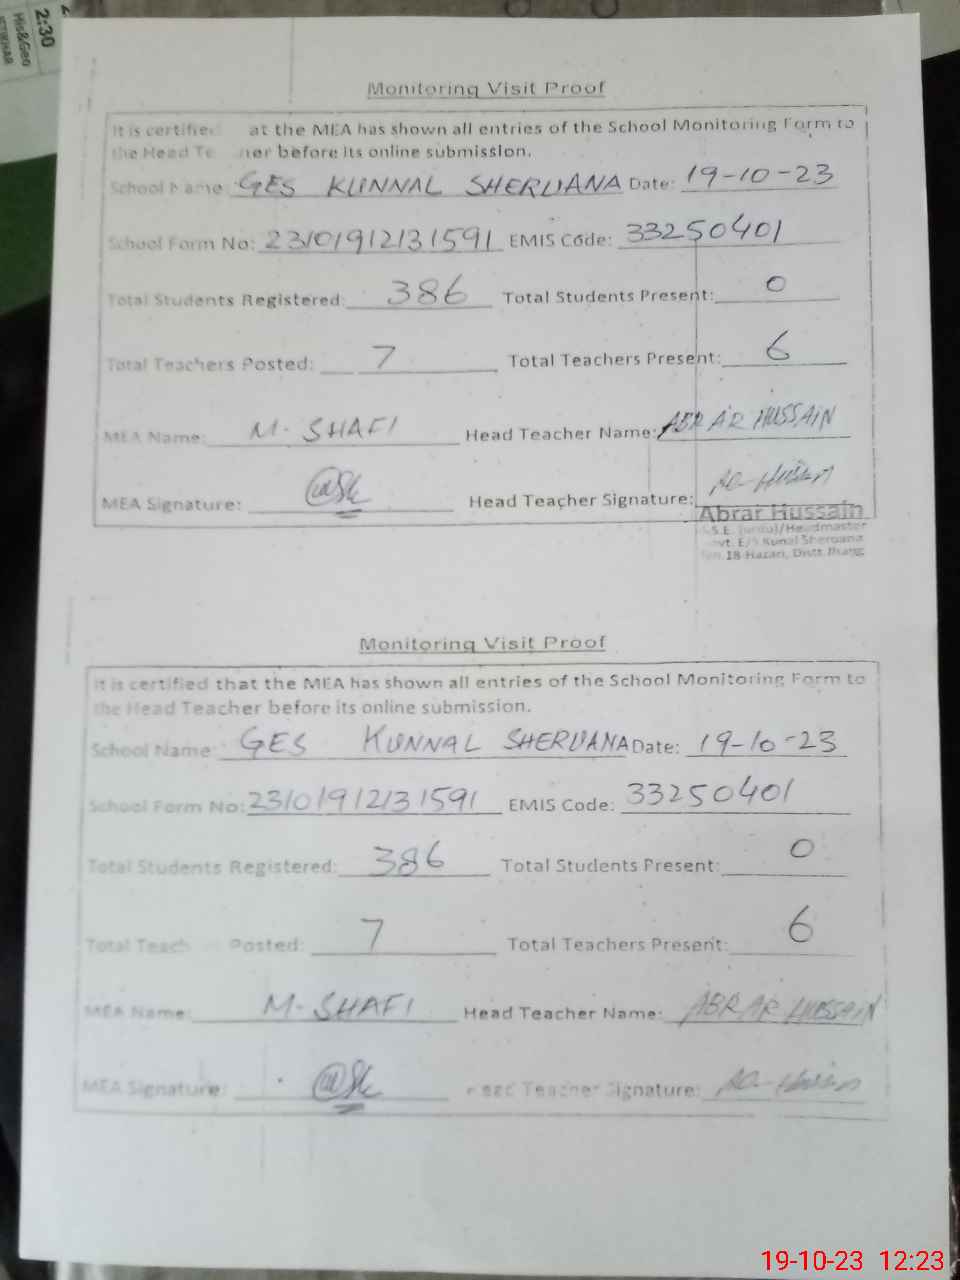 2:30
His&Geo
Monitoring Visit Proof
It is certified at the MEA has shown all entries of the School Monitoring Form to
the Head Te her before its online submission.
School Name: GES KUNNAL SHERUANA Date: 19-10-23
School Form No: 23101912131591 EMIS Code: 33250401
Total Students Registered: 386 Total Students Present: 0
Total Teachers Posted: 7 Total Teachers Present: 6
MEA Name: M. SHAFI Head Teacher Name: ABRAR HUSSAIN
MEA Signature: Head Teacher Signature:
Abrar Hussain
S.S.E. (urdu)/Headmaster
vt. E/S Kunal Sheruana
18-Hazari, Distt Jhang
Monitoring Visit Proof
It is certified that the MEA has shown all entries of the School Monitoring Form to
the Head Teacher before its online submission.
School Name: GES KUNNAL SHERUANA Date: 19-10-23
School Form No: 23101912131591 EMIS Code: 33250401
Total Students Registered: 386 Total Students Present: 0
Total Teach Posted: 7 Total Teachers Present: 6
MEA Name: M. SHAFI Head Teacher Name: ABRAR HUSSAIN
MEA Signature: Head Teacher Signature:
19-10-23 12:23